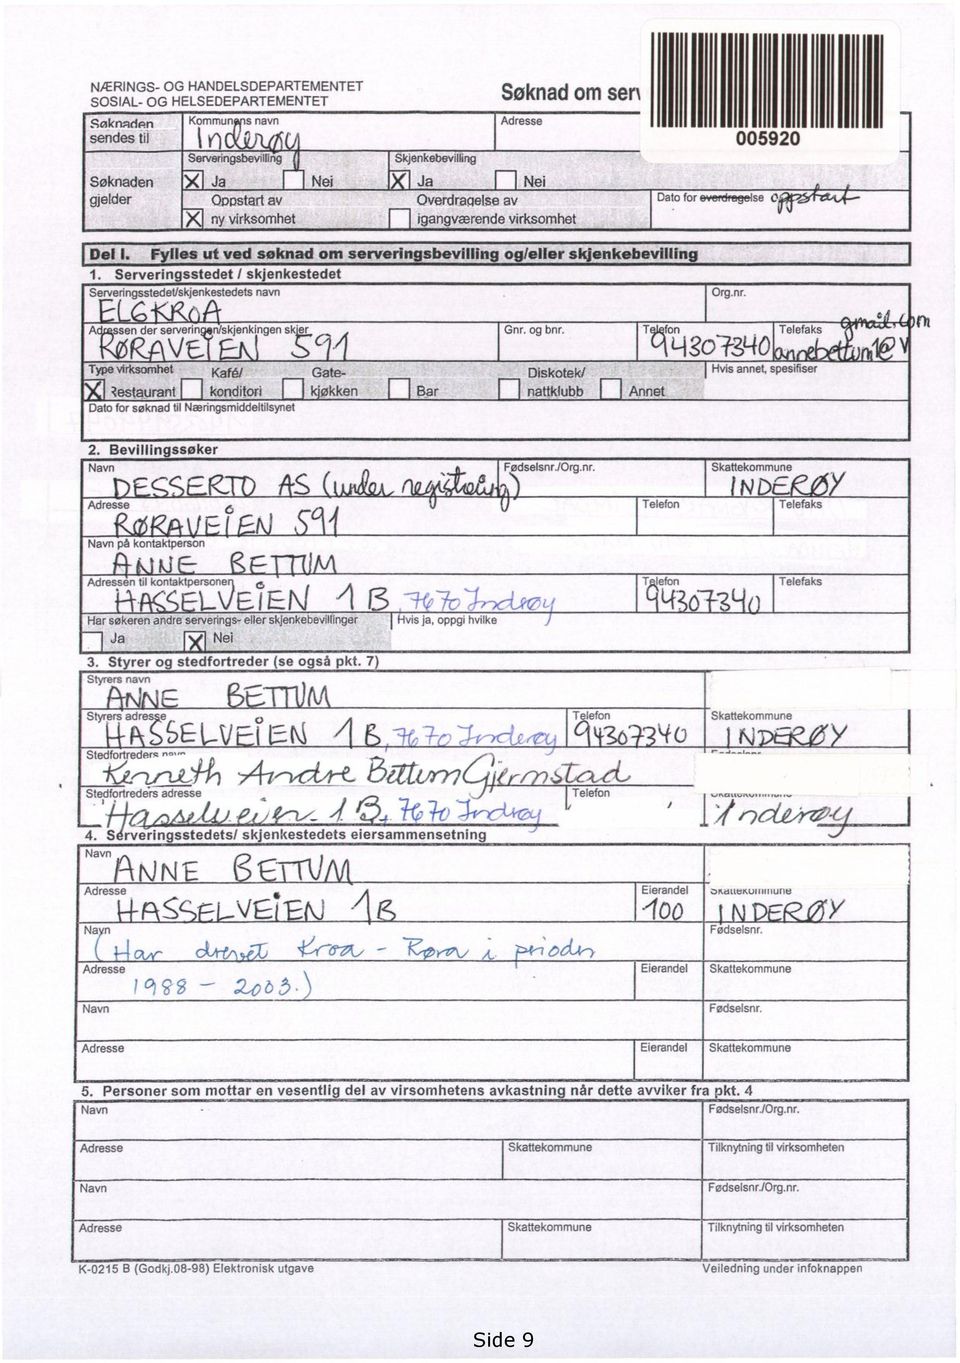 NÆRINGS- OG HANDELSDEPARTEMENTET
SOSIAL- OG HELSEDEPARTEMENTET
Søknad om serv
005920
Søknaden sendes til
Kommunens navn
Adresse
Inderøy
Søknaden gjelder
Serveringsbevilling
Skjenkebevilling
X Ja Nei X Ja Nei
Oppstart av Overdragelse av
X ny virksomhet igangværende virksomhet
Dato for overdragelse oppstart
Del I. Fylles ut ved søknad om serveringsbevilling og/eller skjenkebevilling
1. Serveringsstedet / skjenkestedet
Serveringsstedet/skjenkestedets navn Org.nr.
ELGKROA
Adressen der serveringen/skjenkingen skjer Gnr. og bnr. Telefon Telefaks
RØRAVEIEN 591 94307340 annebettum1@ gmail.com
Type virksomhet Kafé/ Gate- Diskotek/ Hvis annet, spesifiser
X Restaurant konditori kjøkken Bar nattklubb Annet
Dato for søknad til Næringsmiddeltilsynet
2. Bevillingssøker
Navn Fødselsnr./Org.nr. Skattekommune
DESSERTO AS (under registrering) INDERØY
Adresse Telefon Telefaks
RØRAVEIEN 591
Navn på kontaktperson
ANNE BETTUM
Adressen til kontaktpersonen Telefon Telefaks
HASSELVEIEN 1B, 7670 Inderøy 94307340
Har søkeren andre serverings- eller skjenkebevillinger Hvis ja, oppgi hvilke
Ja X Nei
3. Styrer og stedfortreder (se også pkt. 7)
Styrers navn
ANNE BETTUM
Styrers adresse Telefon Skattekommune
HASSELVEIEN 1B, 7670 Inderøy 94307340 INDERØY
Stedfortreders navn
Kenneth Andre Bettum Gjermstad
Stedfortreders adresse Telefon
Hasselveien 1B, 7670 Inderøy Inderøy
4. Serveringsstedets/ skjenkestedets eiersammensetning
Navn
ANNE BETTUM
Adresse Eierandel Skattekommune
HASSELVEIEN 1B 100 INDERØY
Navn Fødselsnr.
(Har drevet Kroa - Røra i perioden
Adresse Eierandel Skattekommune
1988 - 2003.)
Navn Fødselsnr.
Adresse Eierandel Skattekommune
5. Personer som mottar en vesentlig del av virsomhetens avkastning når dette avviker fra pkt. 4
Navn Fødselsnr./Org.nr.
Adresse Skattekommune Tilknytning til virksomheten
Navn Fødselsnr./Org.nr.
Adresse Skattekommune Tilknytning til virksomheten
K-0215 B (Godkj.08-98) Elektronisk utgave Veiledning under infoknappen
Side 9